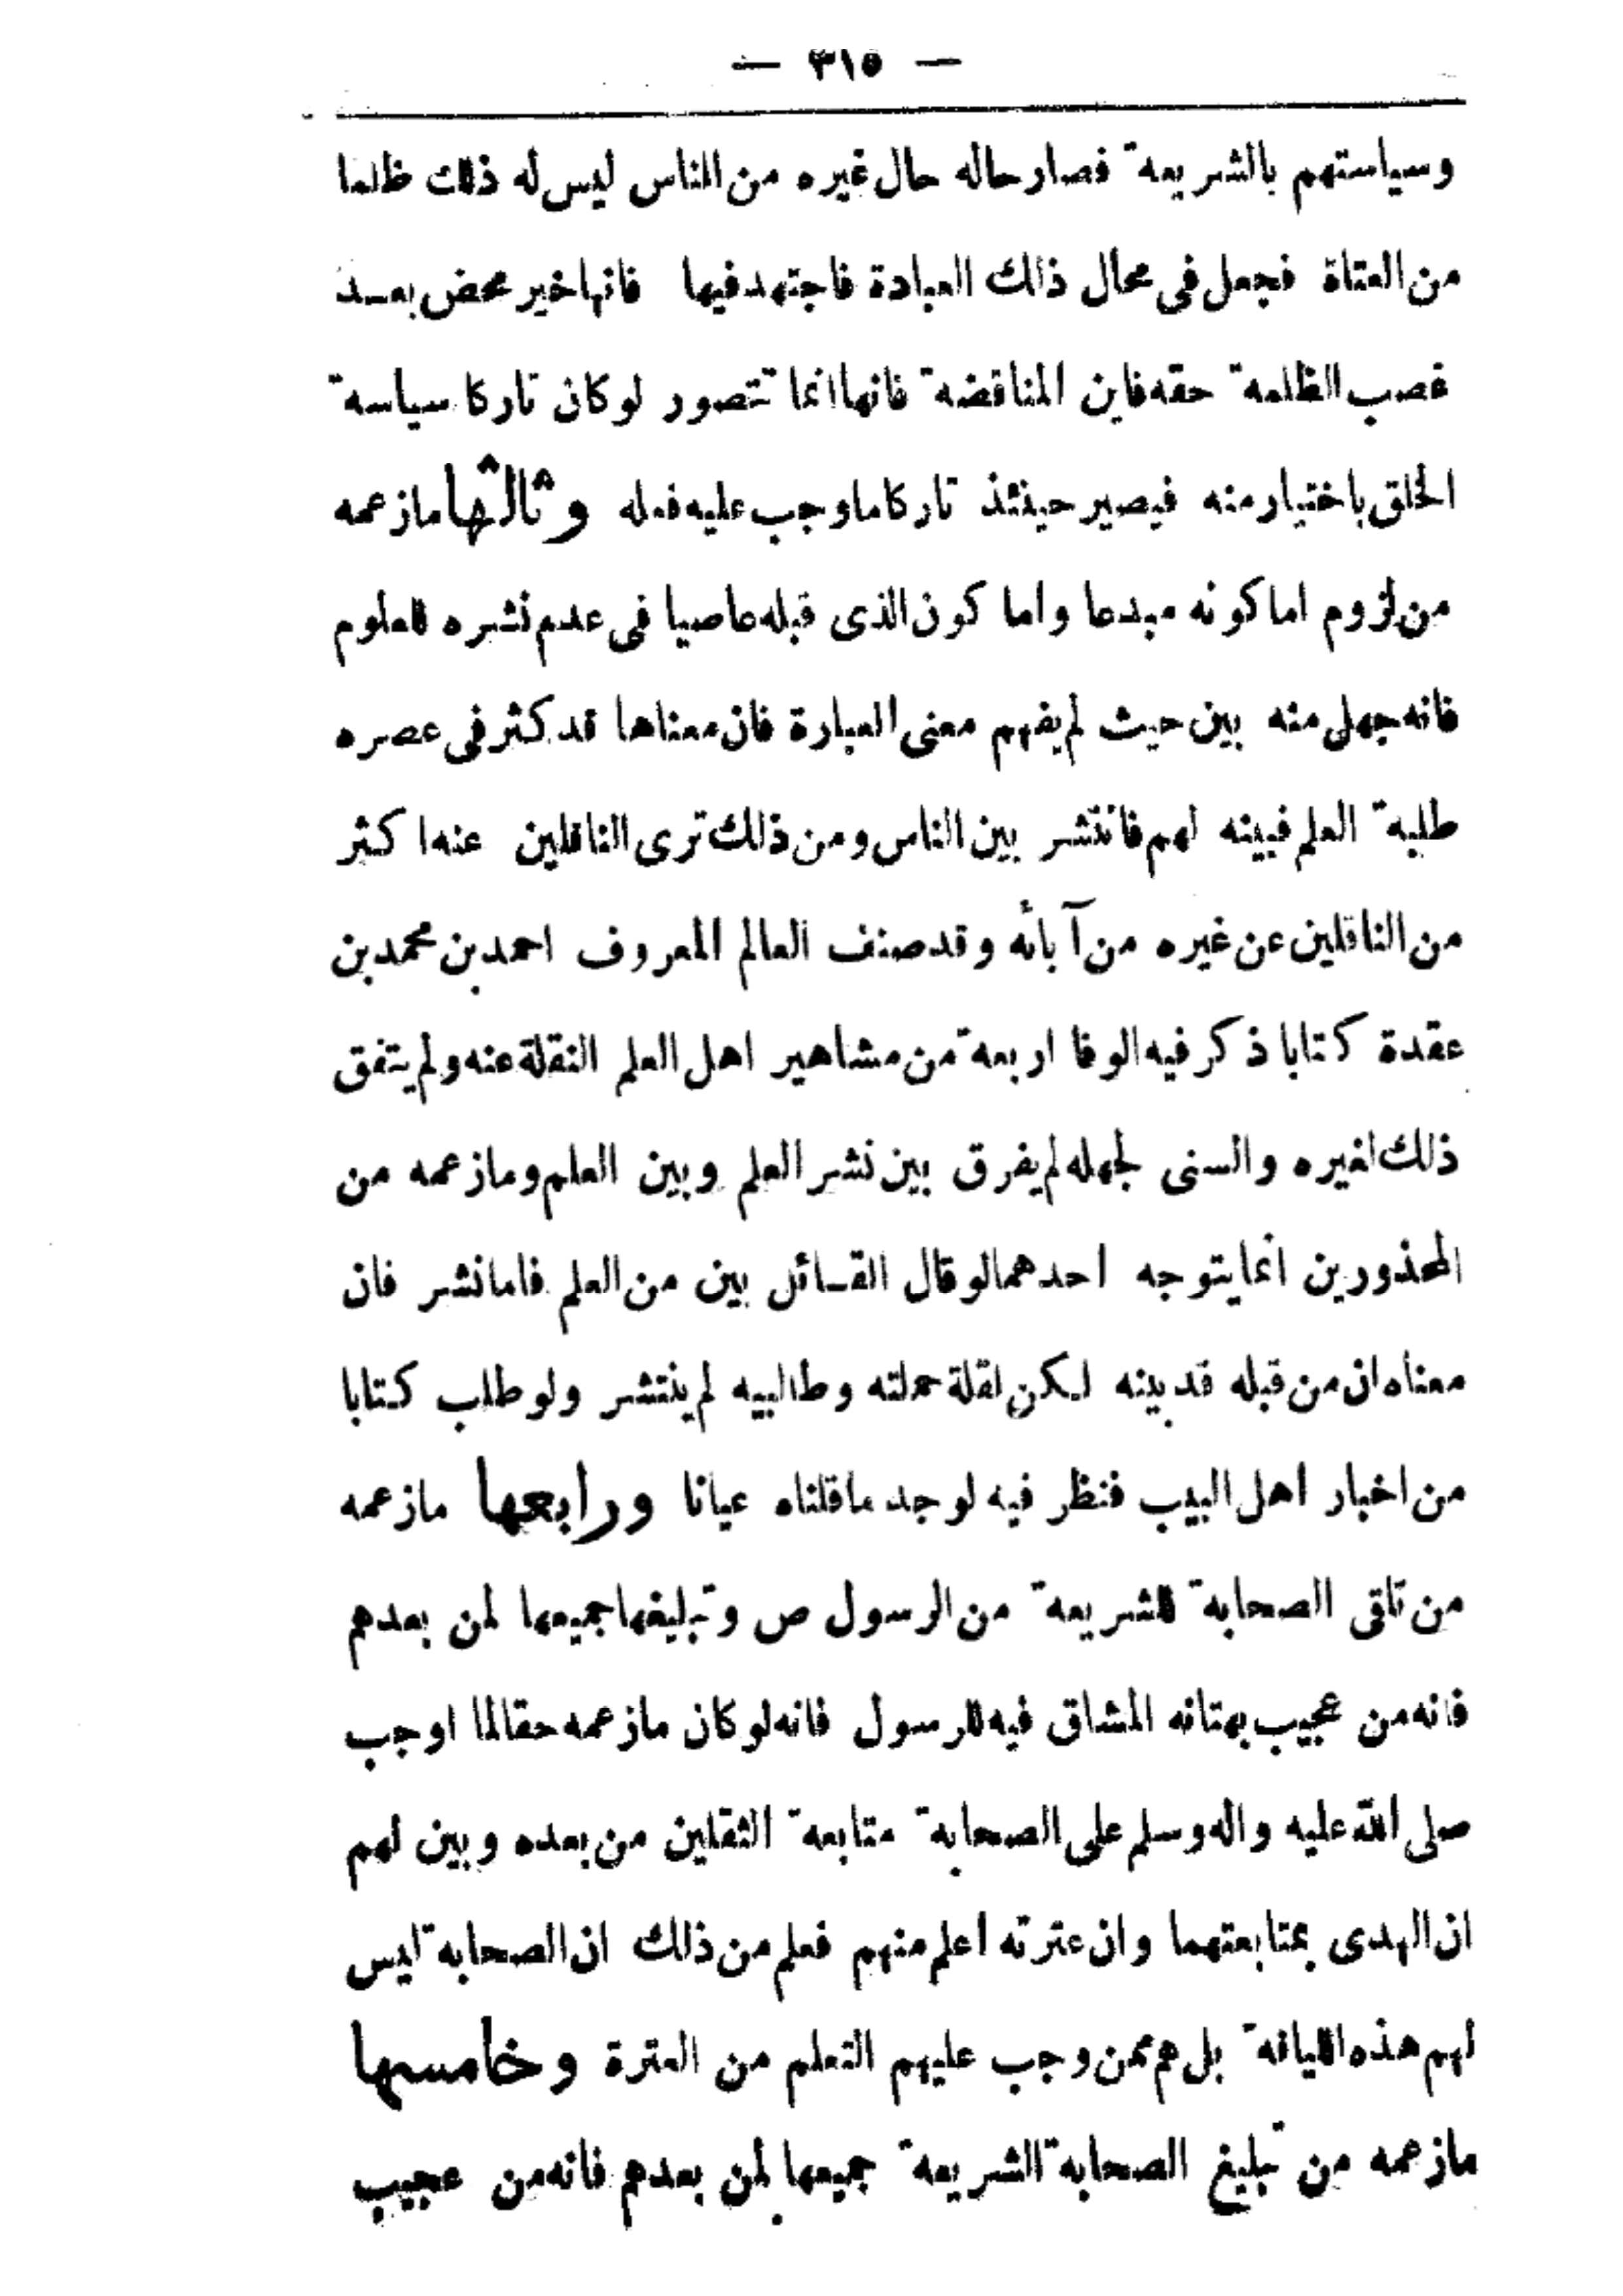 — ٣١٥ —
وسياستهم بالشريعة فصار حاله حال غيره من الناس ليس له ذلك ظلما
من العتاة فجعل فى محال ذلك العبادة فاجتهد فيها فانها خير محض بعد
غصب الظلمة حقه فاين المناقضة فانها انما تتصور لو كان تاركا سياسة
الخلق باختيار منه فيصير حينئذ تاركا ما وجب عليه فعله وثالثها ما زعمه
من لزوم اما كونه مبدعا واما كون الذى قبله عاصيا فى عدم نشره للعلوم
فانه جهل منه بين حيث لم يفهم معنى العبارة فان معناها قد كثر فى عصره
طلبة العلم فبينه لهم فانتشر بين الناس ومن ذلك ترى الناقلين عنه اكثر
من الناقلين عن غيره من آبائه وقد صنف العالم المعروف احمد بن محمد بن
عقدة كتابا ذكر فيه الوفا اربعة من مشاهير اهل العلم النقلة عنه ولم يتفق
ذلك لغيره والسنى لجهله لم يفرق بين نشر العلم وبين العلم وما زعمه من
المحذورين انما يتوجه احدهما لو قال القائل بين من العلم فاما نشر فان
معناه ان من قبله قد بينه لكن لقلة حملته وطالبيه لم ينتشر ولو طلب كتابا
من اخبار اهل البيب فنظر فيه لوجد ما قلناه عيانا ورابعها ما زعمه
من تلقى الصحابة للشريعة من الرسول ص وتبليغها جميعها لمن بعدهم
فانه من عجيب بهتانه المشاق فيه للرسول فانه لو كان ما زعمه حقا لما اوجب
صلى الله عليه واله وسلم على الصحابة متابعة الثقلين من بعده وبين لهم
ان الهدى بمتابعتهما وان عترته اعلم منهم فعلم من ذلك ان الصحابة ليس
لهم هذه اللياقة بل هم ممن وجب عليهم التعلم من العترة وخامسها
ما زعمه من تبليغ الصحابة الشريعة جميعها لمن بعدهم فانه من عجيب